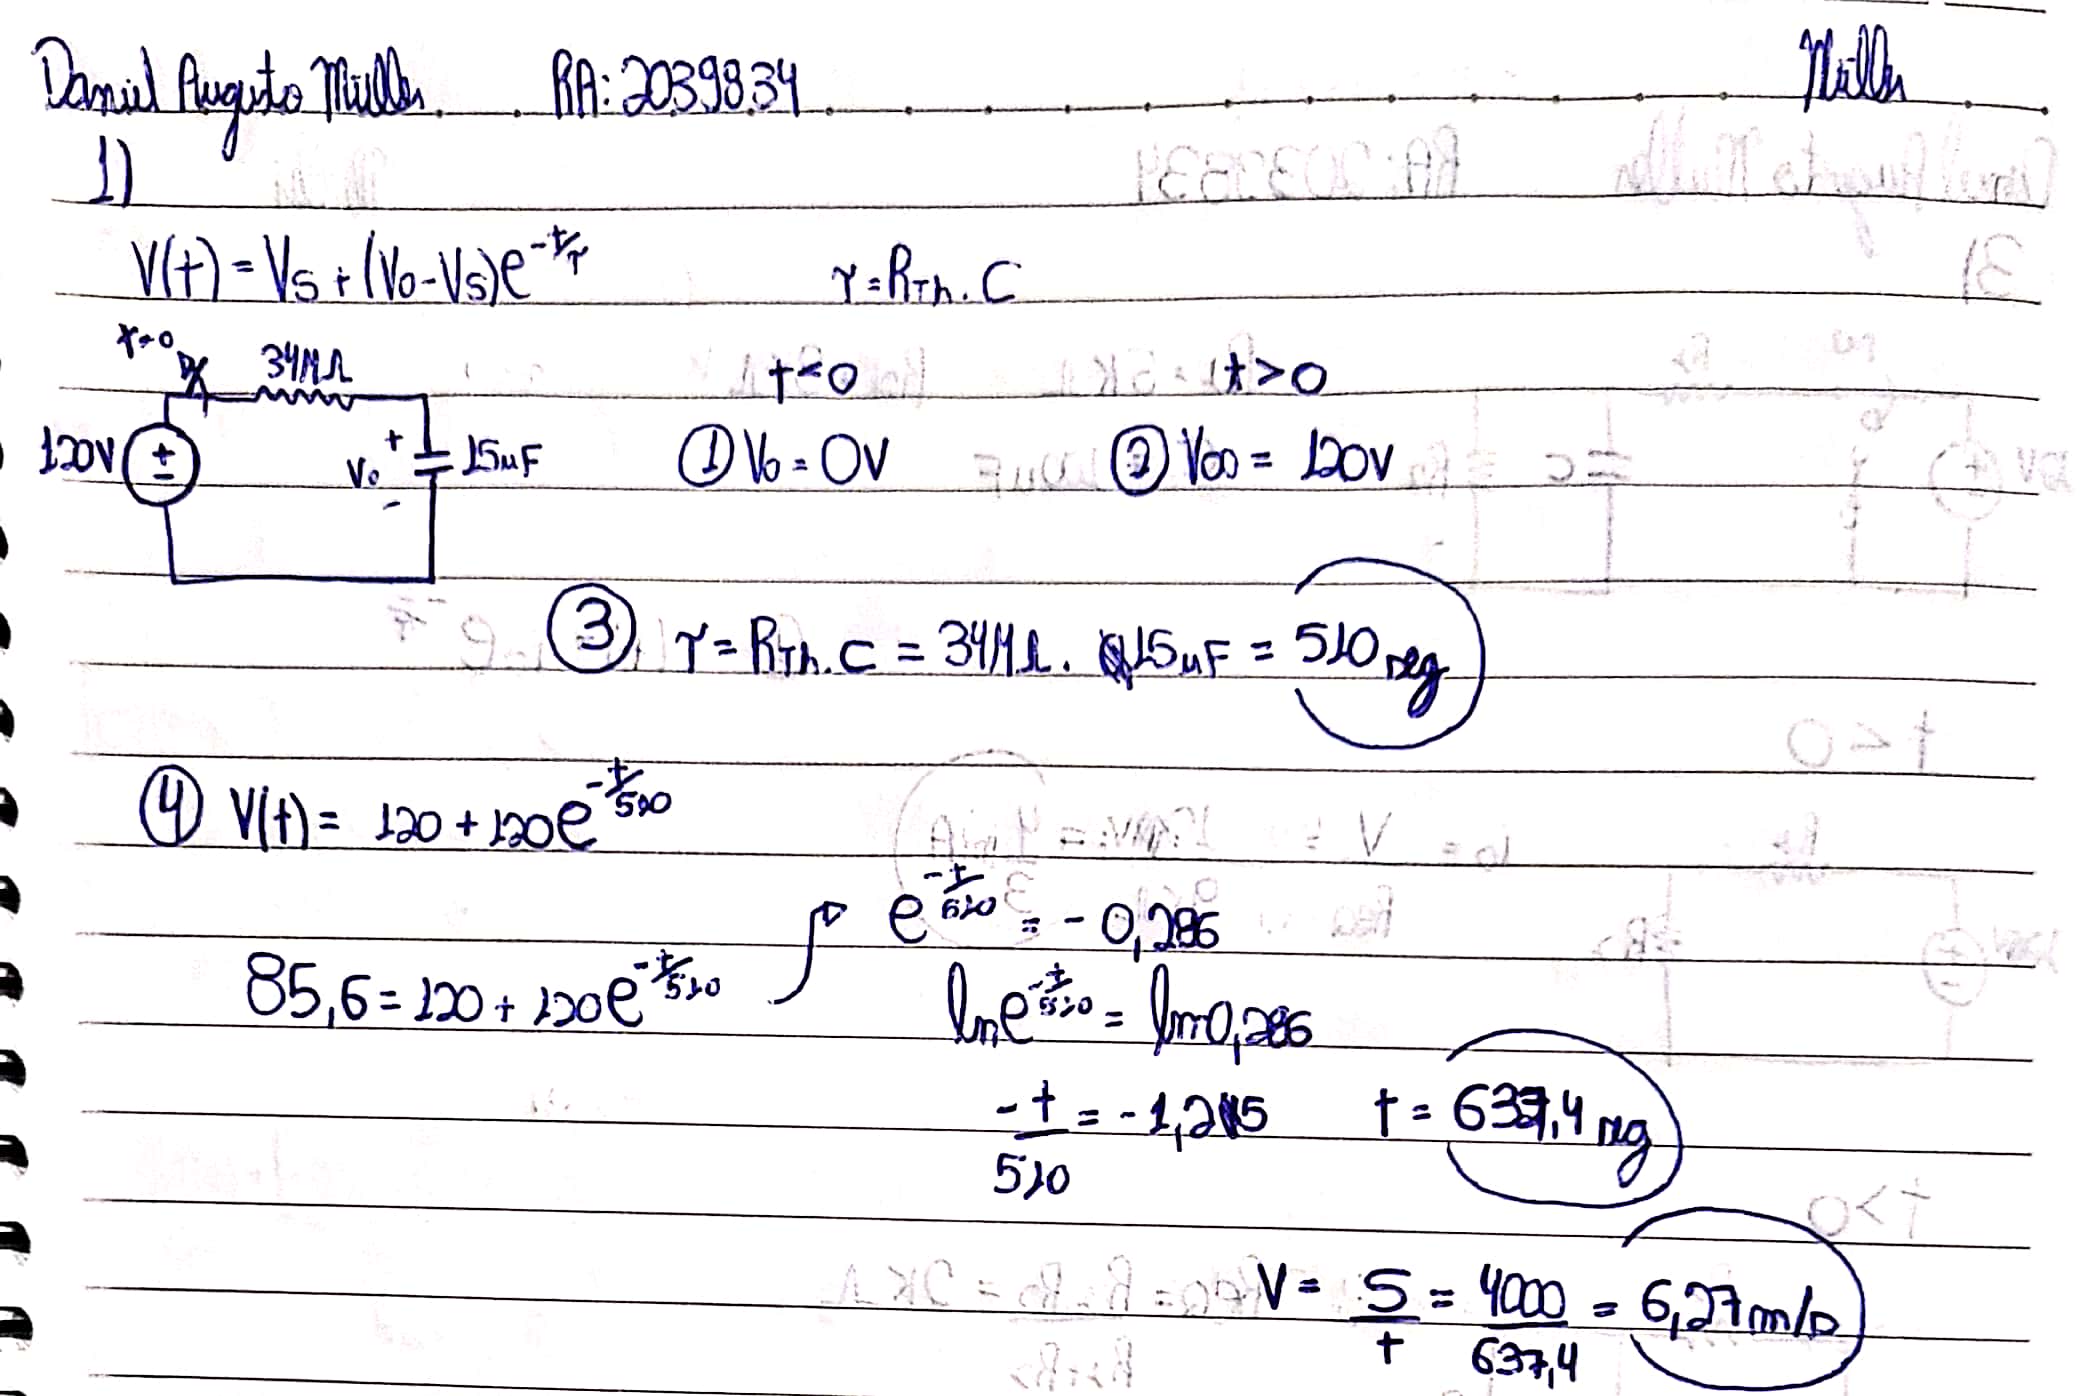 Daniel Augusto Müller RA: 2039834 Müller
1)
V(t) = Vs + (Vo-Vs)e^-t/τ τ = RTh. C
t=0 34MΩ t<0 t>0
120V + - Vo + - 15uF ① Vo = 0V ② V∞ = 120V
③ τ = RTh. C = 34MΩ. 15uF = 510 seg
④ V(t) = 120 + 120e^-t/510
e^-t/510 = - 0,286
85,6 = 120 + 120e^-t/510 ln e^-t/510 = ln 0,286
-t/510 = - 1,25 t = 637,4 seg
V = S/t = 4000/637,4 = 6,27 m/s